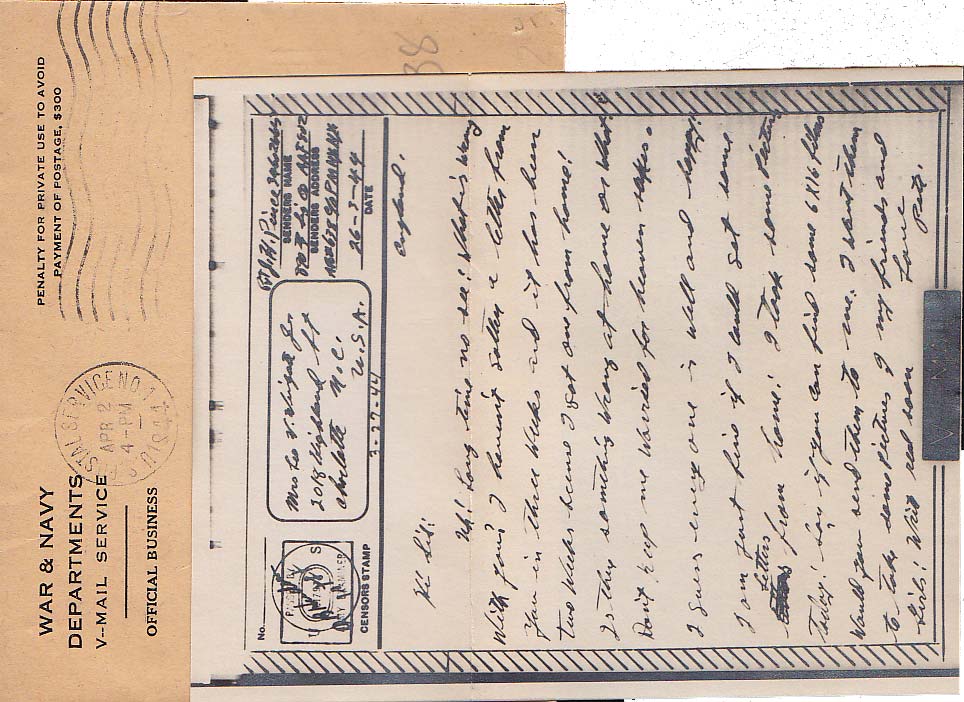 PENALTY FOR PRIVATE USE TO AVOID
PAYMENT OF POSTAGE, $300
SERVICE NO. 1
APR 2
4-PM
1944
WAR & NAVY
DEPARTMENTS
V--MAIL SERVICE
OFFICIAL BUSINESS
38
No.
CENSORS STAMP
Mrs
2018 Highland St
Charlotte N.C.
U.S.A.
SENDERS NAME
SENDERS ADDRESS
26-3-44
DATE
3-27-44
England.
Hi Sis:
Uh! Long time no see! What's wrong
With you? I haven't gotten a letter from
You in three weeks and it has been
two Weeks since I got one from home!
Is they something wrong at home or what?
Don't keep me Worried for heaven sakes.
I guess every one is well and happy!
I am just fine if I could get some
letters from home! I took some pictures
today! say if you can find some 6X16 films
Would you send them to me. I want them
to take some pictures of my friends and
Girls! Write real soon
Love
Pete.
V-MAIL